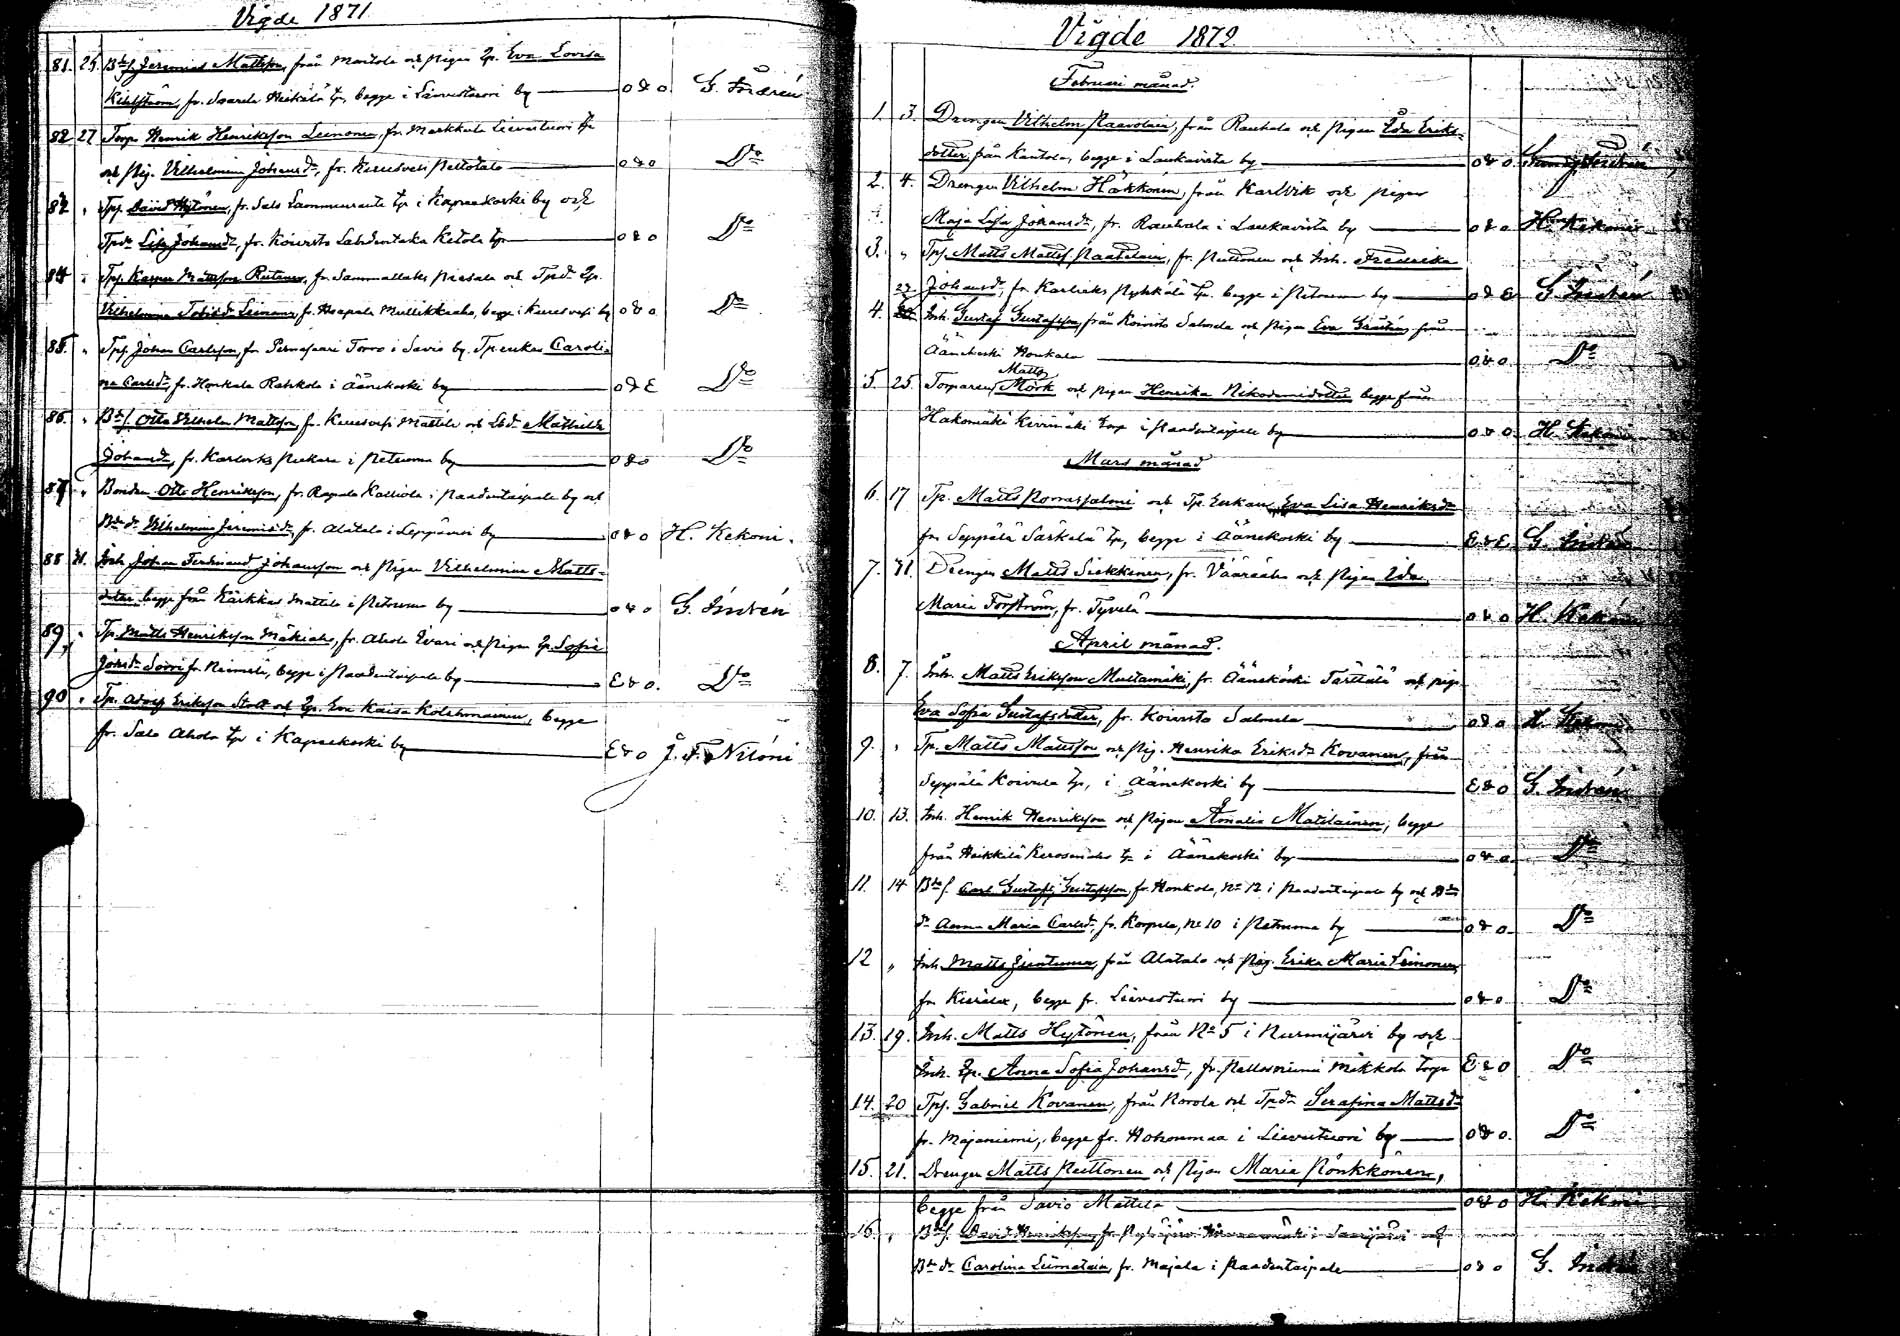 Vigde 1871
81. 26. Bds. Jeremias Mattsson, från Mantola och Pigan Ep. Eva Lovisa
Kihlström, fr. Saarela Heikkilä tp, begge i Lievestuori by o & o. G. Indrén
82 27 Torp. Henrik Henriksson Leinonen, fr. Markkula Lievestuori
och Pig. Vilhelmina Johansdr, fr. Kuusvesi o & o Do
82 " Tps. David Hytönen, fr. Salo Lammensaute tp i Kapeekoski by och
Tpdr Lisa Johansdr, fr. Koivisto Lahdentaka Ketola tp o & o Do
84 " Tps. Kasper Mattsson Rutanen, fr. Sammallahti och Tpdr Ep.
Vilhelmina Leinonen fr. Haapala Mullikkaaho, begge i Kuusvesi by o & o Do
85. " Tps. Johan Carlsson, fr. Torro i Savio by. Tpenkan Caroli-
na Carlsdr, fr. Honkala Rahkola i Äänekoski by o & E Do
86. " Bds. Otto Vilhelm Mattsson fr. Kuusvesi Mattila och Bdr Mathilda
Johansdr, fr. Karlviks i Petruma by o & o Do
87 " Bonden Otto Henriksson, fr. Rapala Kalliola i Paadentaipale by och
Bdedr Vilhelmina Jeremiædr fr. Alatalo i Leppävesi by o & o H. Kekoni.
88 31. Inh. Johan Ferdinand Johansson och Pigan Vilhelmina Matts-
dotter begge från Kärkkäs Mattila i Petruma by o & o G. Indrén
89, " Tp. Matts Henriksson Mäkiaho, fr. Ahola Evari och Pigan Ep. Sofia
Johsdr Sorri fr. Niemelä, begge i Paadentaipale by E & o. Do
90 " Tp. Adolf Eriksson Stolt och Ep. Eva Kaisa Kolehmainen, begge
fr. Salo Ahola tp i Kapeekoski by E & o J. F. Nilóni
Vigde 1872
Februari månad.
1. 3. Drengen Vilhelm Paavolain, från Rauhala och Pigan Ida Eriks-
dotter från Kantola, begge i Laukavirta by o & o
2. 4. Drengen Vilhelm Häkkönen, från Karlvik och Pigan
Maja Lisa Johansdr, fr. Rauhala i Laukavirta by o & o H. Kekoni
3. " Tps. Matts Mattss. Paatelain, fr. Puttonen och Inh. Fredrika
Johansdr, fr. Karlviks Pyhkälä tp. begge i Petruma by o & E G. Indrén
4. 22. Inh. Gustaf Gustafsson, från Koivisto Salmela och Pigan Eva från
Äänekoski Honkala o & o Do
5 25. Torparen, Matts Mörk och Pigan Henrika Nikodemidotter begge från
Hakomäki Kivimäki torp i Paadentaipale by o & o H. Kekoni
Mars månad
6. 17 Tp. Matts Porrassalmi och Tp. Enkan Eva Lisa Henriksdr
fr. Seppälä Särkelä tp, begge i Äänekoski by E & E. G. Indrén
7. 31. Drengen Matts Siekkinen, fr. Vääräaho och Pigan Ida
Maria Forsström, fr. Tyvelä o & o H. Kekoni
April månad.
8. 7. Inh. Matts Eriksson Multamäki, fr. Äänekoski Tärttälä och pig.
Eva Sofia Gustafsdotter, fr. Koivisto Salmela o & o H. Kekoni
9. " Tp. Matts Mattsson och Pig. Henrika Eriksdr Kovanen, från
Seppälä Koivula tp, i Äänekoski by E & o G. Indrén
10. 13. Inh. Henrik Henriksson och Pigan Amalia Matilainen, begge
från Heikkilä tp i Äänekoski by o & o Do
11. 14 Bds. Carl Gustaf Gustafsson, fr. Honkola, No 12 i Paadentaipale by och Bde
dr Anna Maria Carlsdr, fr. Korpela, No 10 i Petruma by o & o. Do
12 " Inh. Matts Jientunen, från Alatalo och Pig. Erika Maria Leinonen,
fr. Kuuselax, begge fr. Lievestuori by o & o Do
13. 19. Inh. Matts Hytönen, från No 5 i Nurmijärvi by och
Inh. Ep. Anna Sofia Johansdr, fr. Pellosniemi Mikkola torp E & o Do
14. 20 Tps. Gabriel Kovanen, från Korola och Tpdr Serafina Mattsdr
fr. Majaniemi, begge fr. Hohonmaa i Lievestuori by o & o. Do
15. 21. Drengen Matts Puttonen och Pigan Maria Pönkkönen,
begge från Savio Mattila o & o H. Kekoni
16. " Bds. David Henriksson, fr. i Saarijärvi och
Bdedr Carolina Leimatain, fr. Majala i Paadentaipale o & o G. Indrén